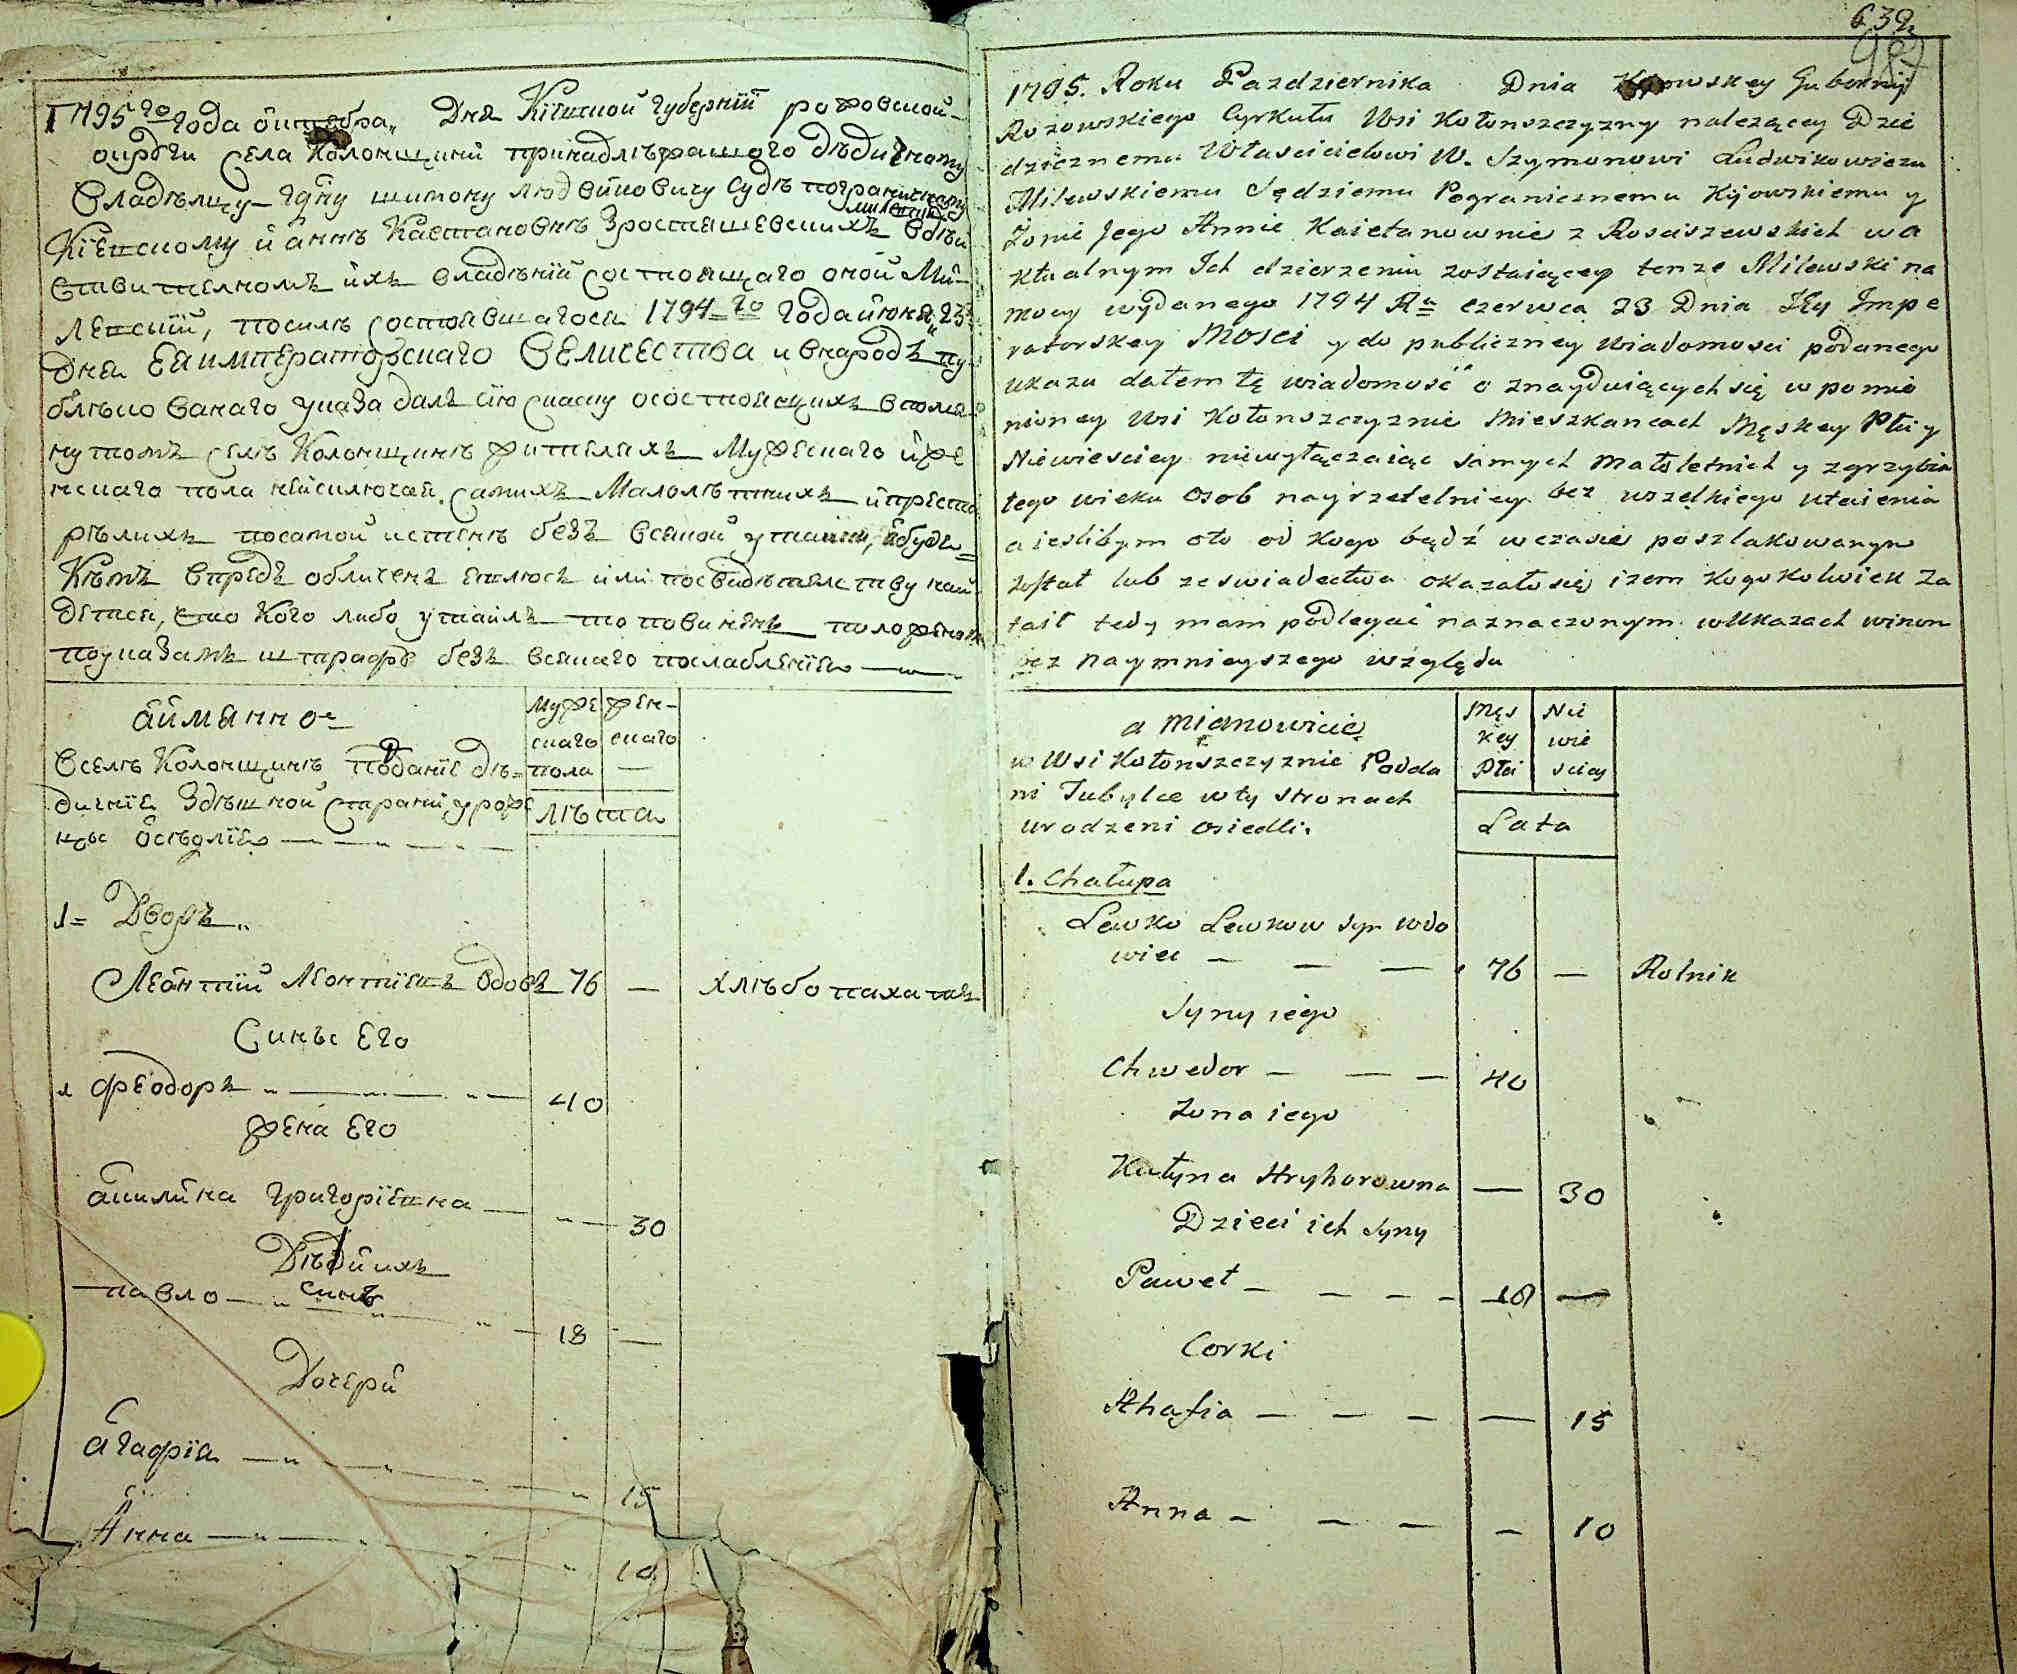 1795го года октября„ Дня Кіевской губерніи рожовской
округи села Колонщины принадлѣжащого дѣдичному
владѣлцу Гдну шимону людвиковичу Судѣ пограничному
милевскому
Кіевскому и аннѣ Каетановнѣ Зростишевскихъ вдѣй
ствителномъ ихъ владѣніи состоящаго оной Ми
левскій, посилѣ состоявшагося 1794-го года июня 23
дня Ея императорскаго Величества и внародъ пу
бликованаго указа далъ сію скаску осостоящихъ впомя
нутомъ селѣ Колонщинѣ жителяхъ Мужескаго и же
нскаго пола неисключая самихъ Малолѣтнихъ и преста
рѣлихъ посамой истенѣ безъ всякой утайки, абуде
Кѣмъ впредъ обличенъ явлюсь или посвидѣтелству най
дется, что Кого либо утаилъ то повиненъ положеном
поуказамъ штрафѣ безъ всякаго послабленія
аимянно
Муже
скаго
пола
жен
скаго
Вселѣ Колонщинѣ поданіе дѣ
дичніе Здѣшной Страни урожен
цы осѣдліе
лѣта
1= Дворъ„
Леонтий Леонтиевъ вдовъ 76 — хлѣбопахатъ
Сины Его
Феодоръ 40
жена Его
акилина григоріевна 30
Дѣти ихъ
синъ
павло 18 —
Дочери
агафія 15
Анна 10
639
987
1795. Roku Pazdziernika Dnia Kijowskey Gubernij
Rozowskiego Cyrkułu Wsi Kołonszczyzny nalezącey Dzie
dzicznemu Włascicielowi W. Szymonowi Ludwikowiczu
Milewskiemu Sędziemu Pogranicznemu Kijowskiemu y
Zonie Jego Annie Kaietanownie z Rosciszewskich w a
ktualnym Ich dzierzeniu zostaiącey tenze Milewski na
mocy wydanego 1794 Ru czerwca 23 Dnia Jey Impe
ratorskey Mosci y do publiczney wiadomosci podanego
ukazu dałem tę wiadomość o znayduiących się w pomie
nioney Wsi Kołonszczyznie Mieszkancach Męskey Płci y
Niewiesciey niewyłączaiąc samych małoletnich y zgrzybia
łego wieku osob nayrzetelniey bez wszelkiego utaienia
a iesliby m oto od kogo bądź w czasie poszlakowanym
został lub ze swiadectwa okazało się izem kogokolwiek za
taił tedy mam podlegać naznaczonym w Ukazach winom
bez naymnieyszego względu
a mianowicie
Męs
key
Płci
Nie
wie
sciey
w Wsi Kołonszczyznie Podda
ni Tubylce w ty stronach
urodzeni osiedli.
Lata
1. Chałupa
Lewko Lewkow syn wdo
wiec — — — 76 — Rolnik
Syny iego
Chwedor — — — 40
Zona iego
Kułyna Hryhorowna — 30
Dzieci ich Syny
Paweł — — — — 18 —
Corki
Ahafia — — — — 15
Anna — — — — 10